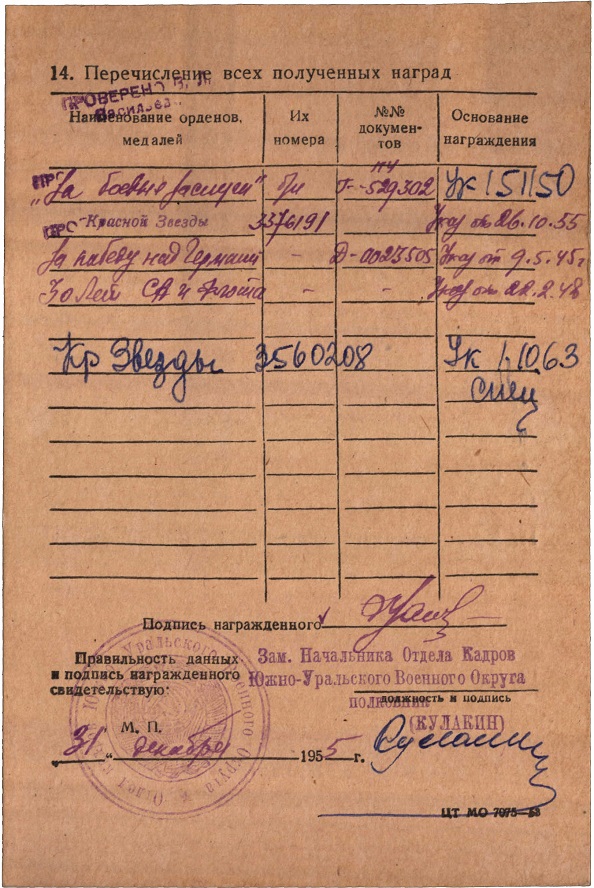 14. Перечисление всех полученных наград
ПРОВЕРЕНО
Наименование орденов, медалей
Их номера
№№ документов
Основание награждения
"За боевые заслуги" б/н Г-529302 Ук 151150
Красной Звезды 3376191 Указ от 26.10.55
За победу над Германи - Д-0023505 Указ от 9.5.45г
30 Лет СА и Флота - - Указ от 22.2.48
Кр Звезды 3560208 Ук 1.1063
Подпись награжденного
Правильность данных
и подпись награжденного
свидетельствую:
Зам. Начальника Отдела Кадров
Южно-Уральского Военного Округа
полковник
должность и подпись
(КУЛАКИН)
М. П.
"31" декабря 1955 г.
ЦТ МО 7075-53